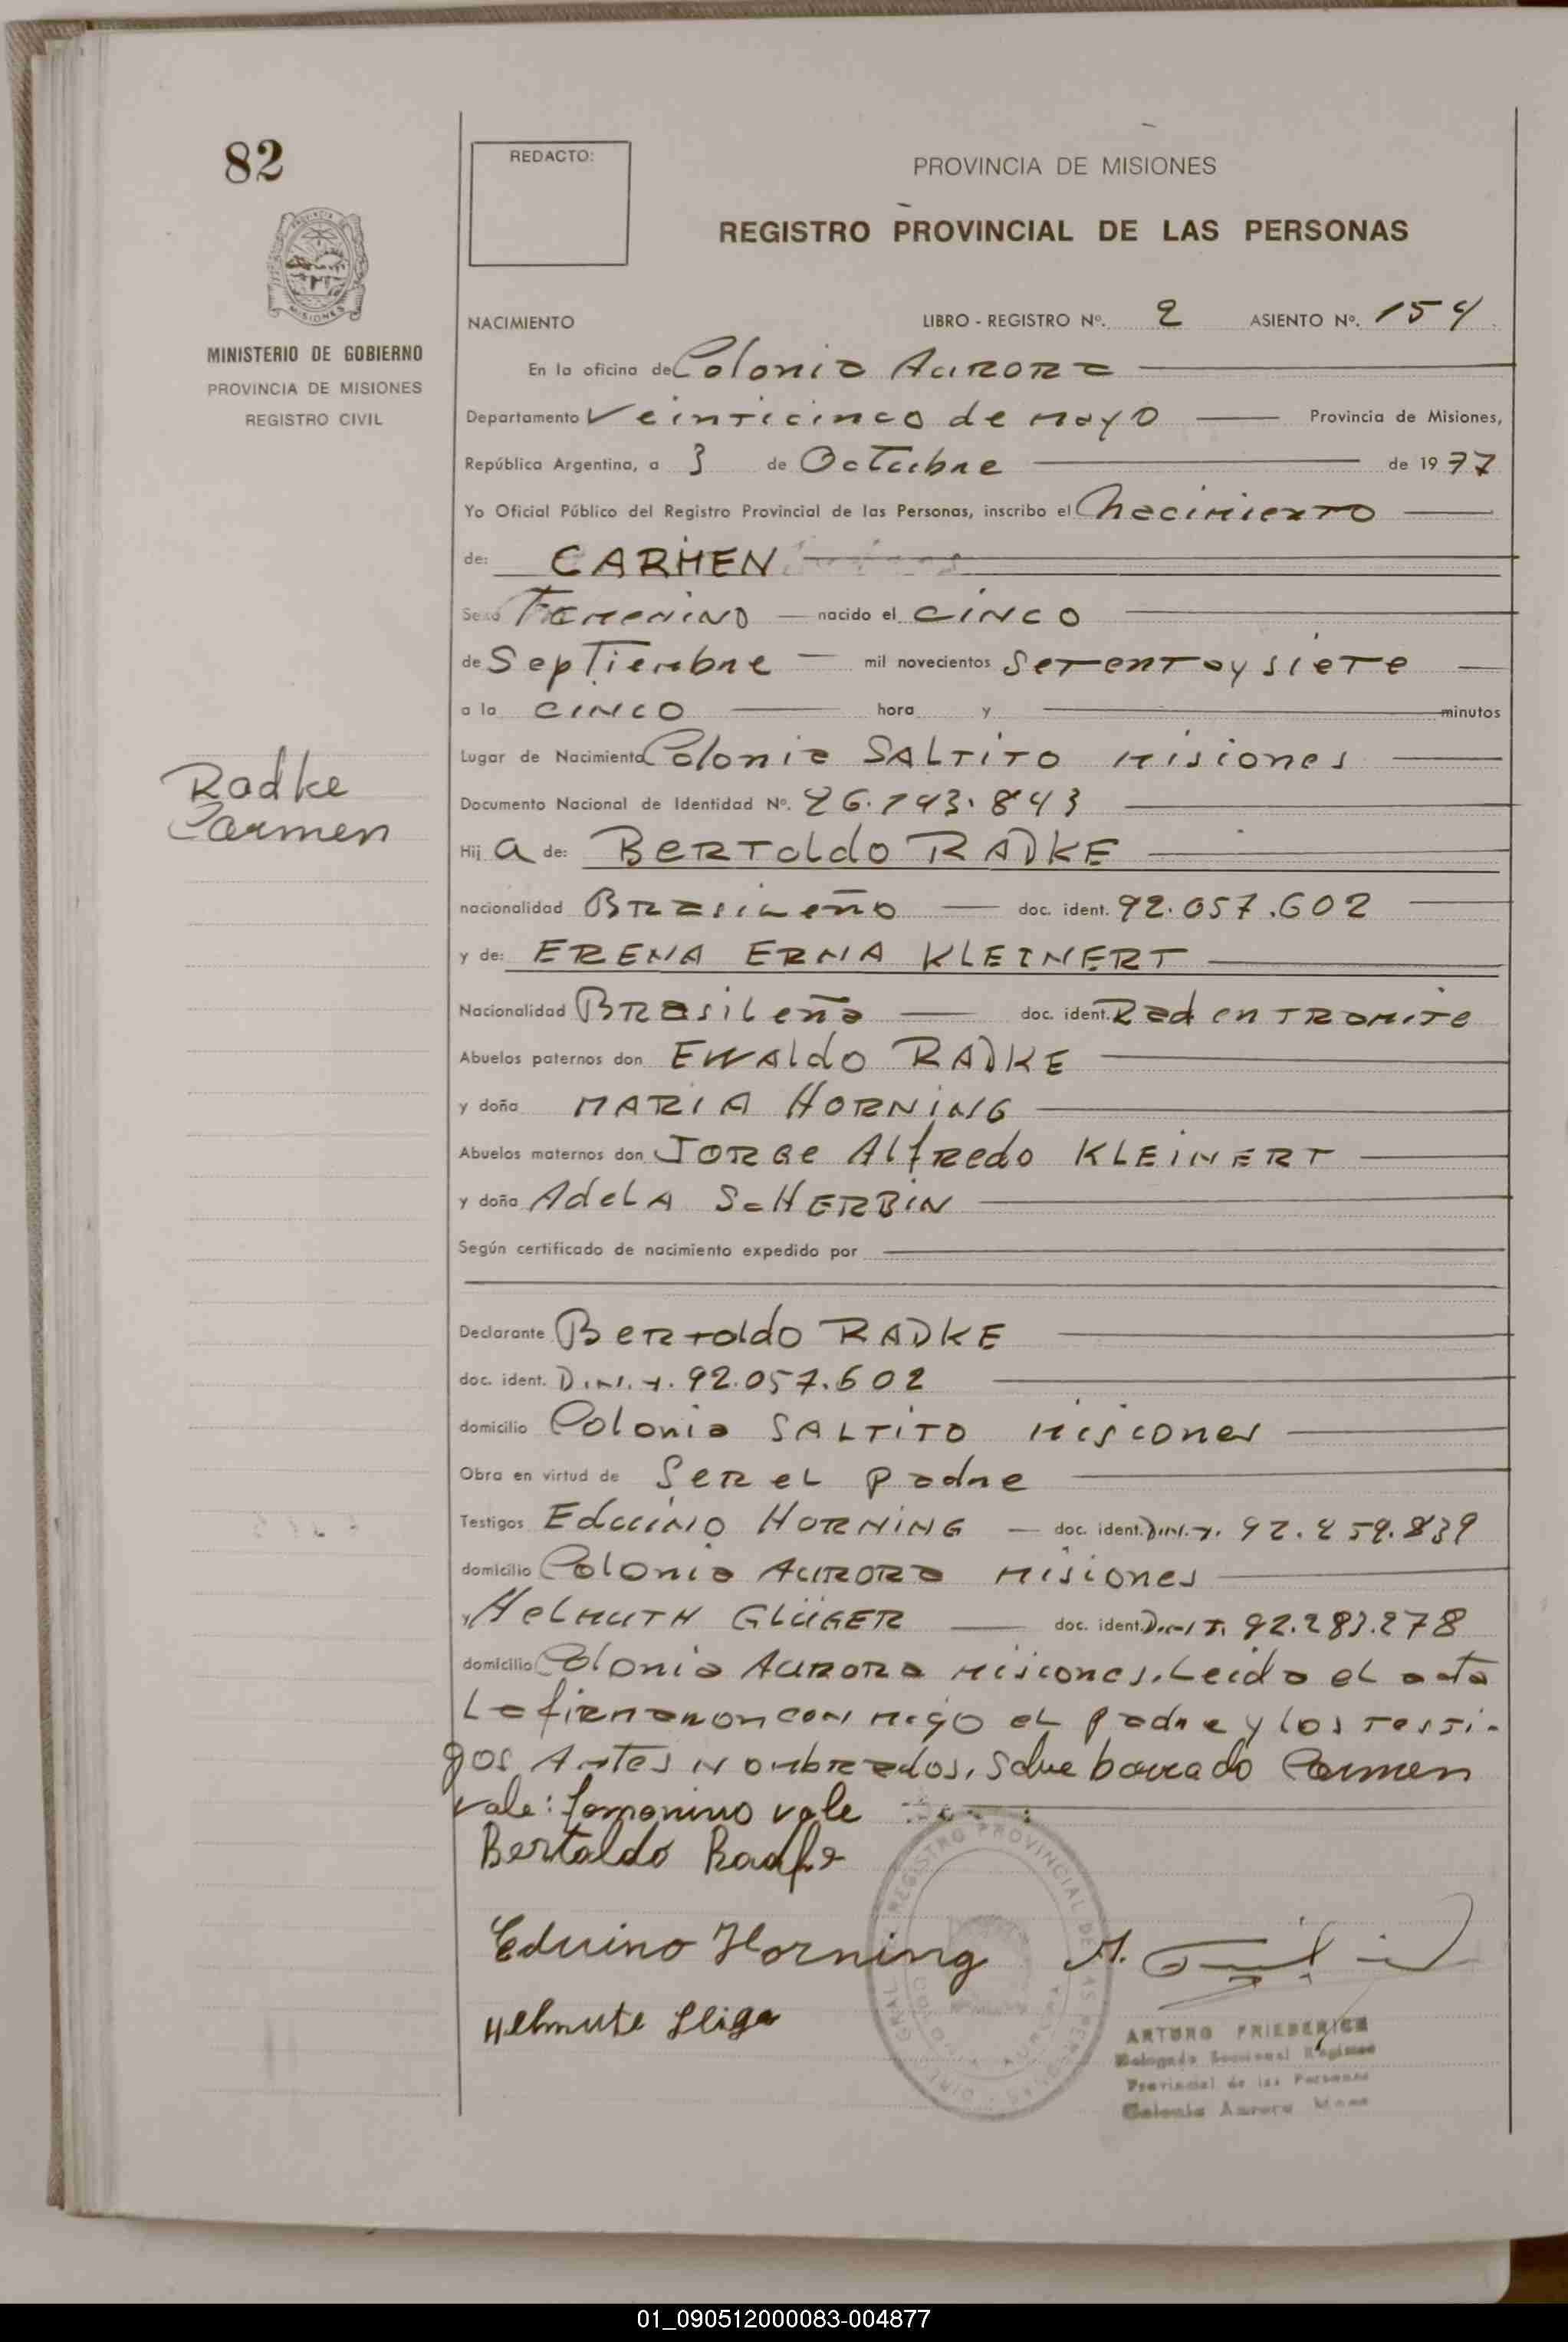 82
REDACTO:
PROVINCIA DE MISIONES
REGISTRO PROVINCIAL DE LAS PERSONAS
MISIONES
MINISTERIO DE GOBIERNO
PROVINCIA DE MISIONES
REGISTRO CIVIL
NACIMIENTO LIBRO - REGISTRO Nº. 2 ASIENTO Nº. 154
En la oficina de Colonia AURORA
Departamento Veinticinco de mayo Provincia de Misiones,
República Argentina, a 3 de Octubre de 1977
Yo Oficial Público del Registro Provincial de las Personas, inscribo el Nacimiento
de: CARMEN
Sexo Femenino nacido el CINCO
de Septiembre mil novecientos Setenta y siete
a la CINCO hora y minutos
Lugar de Nacimiento Colonia SALTITO Misiones
Radke
Carmen
Documento Nacional de Identidad Nº. 26.193.843
Hij a de: BERTOLDO RADKE
nacionalidad BRASILEÑO doc. ident. 92.057.602
y de: ERENA ERNA KLEINERT
Nacionalidad BRASILEÑA doc. ident. Rad en TRAMITE
Abuelos paternos don EWALDO RADKE
y doña MARIA HORNING
Abuelos maternos don JORGE Alfredo KLEINERT
y doña AdeLA ScHERBIN
Según certificado de nacimiento expedido por
Declarante BERTOLDO RADKE
doc. ident. D.N.I. 92.057.602
domicilio Colonia SALTITO Misiones
Obra en virtud de Ser el padre
Testigos Eduino HORNING doc. ident. D.N.I. 92.259.839
domicilio Colonia AURORA Misiones
y HELMUTH GLÜGER doc. ident. D.N.I. 92.283.278
domicilio Colonia AURORA Misiones. Leida el acta
La firmaron con migo el padre y los testi-
gos Antes Nombrados. Sobre borrado Carmen
vale: femenino vale
Bertoldo Radke
Eduino Horning
Helmute
REGISTRO PROVINCIAL DE LAS PERSONAS
ARTURO FRIEDERICH
Delegado Seccional Registro
Provincial de las Personas
Colonia Aurora Mnes
01_090512000083-004877